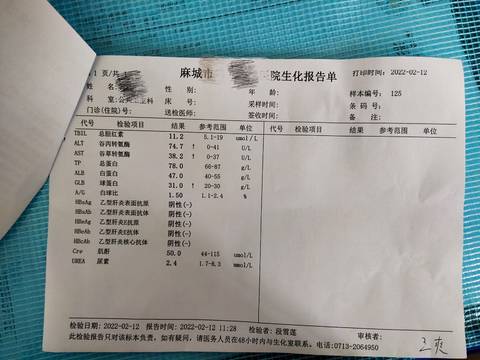 1 页/共
麻城市 院生化报告单 打印时间: 2022-02-12
姓 性别: 年 龄: 样本编号: 125
科 室: 床 号: 采样时间: 条 码 号:
门诊(住院)号: 送检医师: 签收时间: 备 注:
代号 检验项目 结果 参考范围 单位 代号 检验项目 结果 参考范围 单位
TBIL 总胆红素 11.2 5.1-19 umol/L
ALT 谷丙转氨酶 74.7 ↑ 0-41 U/L
AST 谷草转氨酶 38.2 ↑ 0-37 U/L
TP 总蛋白 78.0 66-87 g/L
ALB 白蛋白 47.0 40-55 g/L
GLB 球蛋白 31.0 ↑ 20-30 g/L
A/G 白球比 1.50 1.1-2.4 %
HBsAg 乙型肝炎表面抗原 阴性(-)
HBsAb 乙型肝炎表面抗体 阴性(-)
HBeAg 乙型肝炎E抗原 阴性(-)
HBeAb 乙型肝炎E抗体 阴性(-)
HBcAb 乙型肝炎核心抗体 阴性(-)
Cre 肌酐 50.0 44-115 umol/L
UREA 尿素 2.4 1.7-8.3 mmol/L
检验日期: 2022-02-12 报告时间: 2022-02-12 11:28 检验者: 段雪莲 审核者:
此检验报告只对该标本负责, 如有疑问, 请医务人员在48小时内与生化室联系。电话:0713-2064950